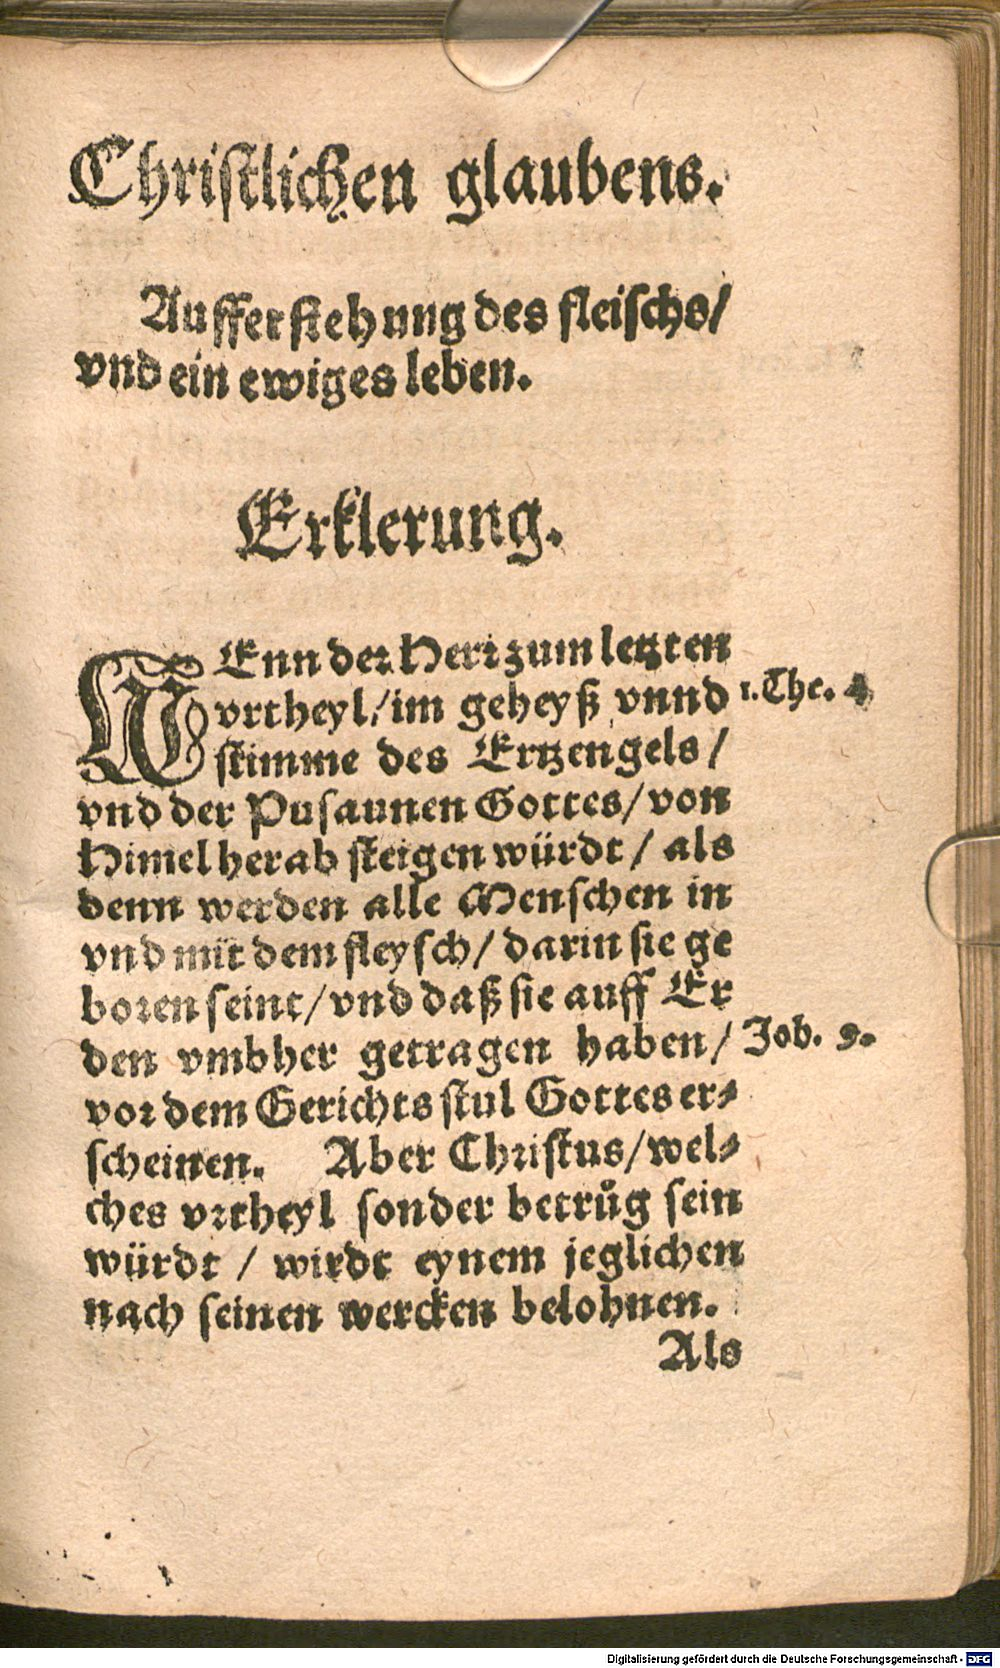 Christlichen glaubens.
Aufferstehung des fleischs/
vnd ein ewiges leben.
Erklerung.
WEnn der Herr zum letzten
vrtheyl/im geheyß vnnd
1.The. 4
stimme des Ertzengels/
vnd der Pusaunen Gottes/von
Himel herab steigen würdt/ als
denn werden alle Menschen in
vnd mit dem fleysch/ darin sie ge
boren seint/vnd daß sie auff Er
den vmbher getragen haben/
Job. 9.
vor dem Gerichts stul Gottes er-
scheinen. Aber Christus/wel-
ches vrtheyl sonder betrůg sein
würdt / wirdt eynem jeglichen
nach seinen wercken belohnen.
Als
Digitalisierung gefördert durch die Deutsche Forschungsgemeinschaft - DFG